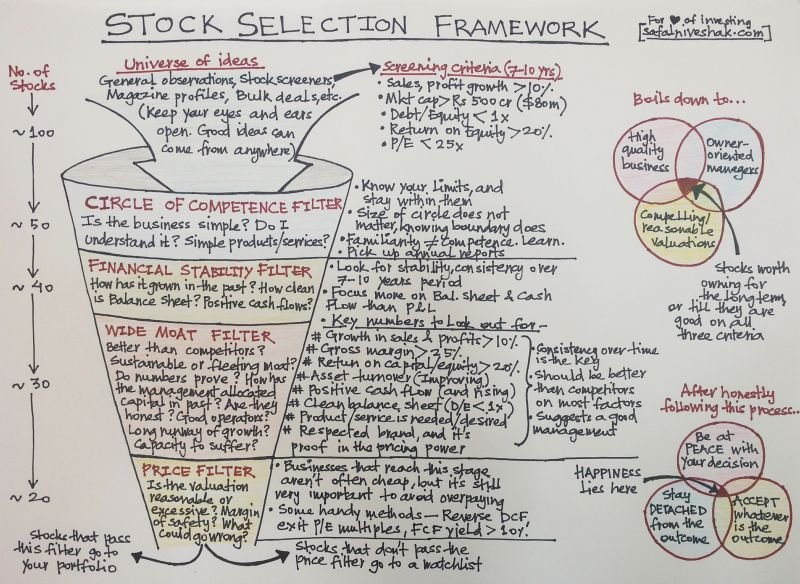 STOCK SELECTION FRAMEWORK
For ♥ of investing
[safalniveshak.com]
No. of
Stocks
~100
~50
~40
~30
~20
Universe of ideas
General observations, Stock screeners,
Magazine profiles, Bulk deals, etc.
(Keep your eyes and ears
open. Good ideas can
come from anywhere)
Screening criteria (7-10 yrs)
• Sales, profit growth >10%
• Mkt cap > Rs 500 cr ($80m)
• Debt/Equity < 1x
• Return on Equity >20%
• P/E < 25x
CIRCLE OF COMPETENCE FILTER
Is the business simple? Do I
understand it? Simple products/services?
• Know your limits, and
stay within them
• Size of circle does not
matter, knowing boundary does
• Familiarity ≠ competence. Learn.
• Pick up annual reports
FINANCIAL STABILITY FILTER
How has it grown in the past? How clean
is Balance Sheet? Positive cash flows?
• Look for stability, consistency over
7-10 years period
• Focus more on Bal. Sheet & Cash
Flow than P&L
WIDE MOAT FILTER
Better than competitors?
Sustainable or fleeting moat?
Do numbers prove? How has
the management allocated
capital in past? Are they
honest? Good operators?
Long runway of growth?
Capacity to suffer?
• Key numbers to look out for-
# Growth in sales & profits >10%
# Gross margin >25%
# Return on capital/equity >20%
# Asset turnover (Improving)
# Positive cash flow (and rising)
# Clean balance sheet (D/E < 1x)
# Product/service is needed/desired
# Respected brand, and it's
proof in the pricing power
• Consistency over-time
is the key
• Should be better
then competitors
on most factors
• Suggests a good
management
PRICE FILTER
Is the valuation
reasonable or
excessive? Margin
of safety? What
could go wrong?
• Businesses that reach this stage
aren't often cheap, but it's still
very important to avoid overpaying
• Some handy methods — Reverse DCF,
exit P/E multiples, FCF yield >10%
Stocks that pass
this filter go to
your portfolio
Stocks that don't pass the
price filter go to a watchlist
Boils down to...
High
quality
business
Owner-
oriented
managers
Compelling/
reasonable
valuations
Stocks worth
owning for
the long term,
or till they are
good on all
three criteria
After honestly
following this process..
Be at
PEACE with
your decision
HAPPINESS
Lies here
Stay
DETACHED
from the
outcome
ACCEPT
whatever
is the
outcome